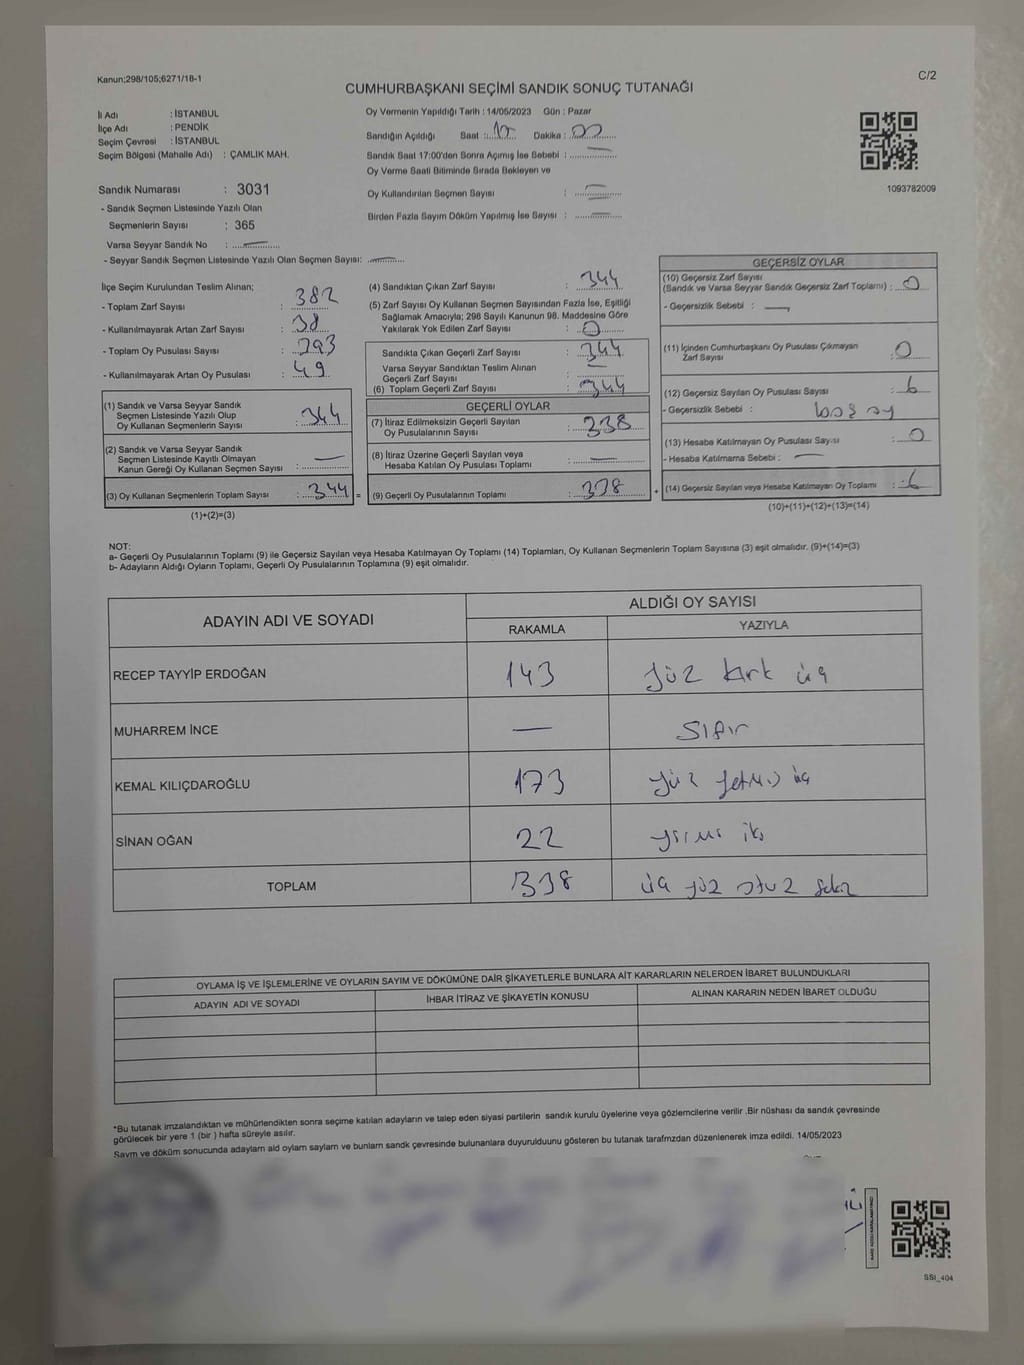 Kanun;298/105;6271/18-1
C/2
CUMHURBAŞKANI SEÇİMİ SANDIK SONUÇ TUTANAĞI
İl Adı : İSTANBUL
İlçe Adı : PENDİK
Seçim Çevresi : İSTANBUL
Seçim Bölgesi (Mahalle Adı) : ÇAMLIK MAH.
Oy Vermenin Yapıldığı Tarih : 14/05/2023 Gün : Pazar
Sandığın Açıldığı Saat : Dakika :
Sandık Saat 17:00'den Sonra Açımış İse Sebebi : —
Oy Verme Saati Bitiminde Sırada Bekleyen ve
Oy Kullandırılan Seçmen Sayısı : —
Birden Fazla Sayım Döküm Yapılmış İse Sayısı : —
1093782009
Sandık Numarası : 3031
- Sandık Seçmen Listesinde Yazılı Olan
Seçmenlerin Sayısı : 365
Varsa Seyyar Sandık No : —
- Seyyar Sandık Seçmen Listesinde Yazılı Olan Seçmen Sayısı: —
İlçe Seçim Kurulundan Teslim Alınan;
- Toplam Zarf Sayısı : 382
- Kullanılmayarak Artan Zarf Sayısı : 38
- Toplam Oy Pusulası Sayısı : 293
- Kullanılmayarak Artan Oy Pusulası : 49
(1) Sandık ve Varsa Seyyar Sandık
Seçmen Listesinde Yazılı Olup
Oy Kullanan Seçmenlerin Sayısı : 344
(2) Sandık ve Varsa Seyyar Sandık
Seçmen Listesinde Kayıtlı Olmayan
Kanun Gereği Oy Kullanan Seçmen Sayısı : —
(3) Oy Kullanan Seçmenlerin Toplam Sayısı : 344 =
(1)+(2)=(3)
(4) Sandıktan Çıkan Zarf Sayısı : 344
(5) Zarf Sayısı Oy Kullanan Seçmen Sayısından Fazla İse, Eşitliği
Sağlamak Amacıyla; 298 Sayılı Kanunun 98. Maddesine Göre
Yakılarak Yok Edilen Zarf Sayısı : 0
Sandıkta Çıkan Geçerli Zarf Sayısı : 344
Varsa Seyyar Sandıktan Teslim Alınan
Geçerli Zarf Sayısı : —
(6) Toplam Geçerli Zarf Sayısı : 344
GEÇERLİ OYLAR
(7) İtiraz Edilmeksizin Geçerli Sayılan
Oy Pusulalarının Sayısı : 338
(8) İtiraz Üzerine Geçerli Sayılan veya
Hesaba Katılan Oy Pusulası Toplamı : —
(9) Geçerli Oy Pusulalarının Toplamı : 338 +
GEÇERSİZ OYLAR
(10) Geçersiz Zarf Sayısı
(Sandık ve Varsa Seyyar Sandık Geçersiz Zarf Toplamı) : 0
- Geçersizlik Sebebi : —
(11) İçinden Cumhurbaşkanı Oy Pusulası Çıkmayan
Zarf Sayısı : 0
(12) Geçersiz Sayılan Oy Pusulası Sayısı : 6
- Geçersizlik Sebebi : boş oy
(13) Hesaba Katılmayan Oy Pusulası Sayısı : 0
- Hesaba Katılmama Sebebi : —
(14) Geçersiz Sayılan veya Hesaba Katılmayan Oy Toplamı : 6
(10)+(11)+(12)+(13)=(14)
NOT:
a- Geçerli Oy Pusulalarının Toplamı (9) ile Geçersiz Sayılan veya Hesaba Katılmayan Oy Toplamı (14) Toplamları, Oy Kullanan Seçmenlerin Toplam Sayısına (3) eşit olmalıdır. (9)+(14)=(3)
b- Adayların Aldığı Oyların Toplamı, Geçerli Oy Pusulalarının Toplamına (9) eşit olmalıdır.
ADAYIN ADI VE SOYADI
ALDIĞI OY SAYISI
RAKAMLA YAZIYLA
RECEP TAYYİP ERDOĞAN 143 yüz kırk üç
MUHARREM İNCE — sıfır
KEMAL KILIÇDAROĞLU 173 yüz yetmiş üç
SİNAN OĞAN 22 yirmi iki
TOPLAM 338 üç yüz otuz sekiz
OYLAMA İŞ VE İŞLEMLERİNE VE OYLARIN SAYIM VE DÖKÜMÜNE DAİR ŞİKAYETLERLE BUNLARA AİT KARARLARIN NELERDEN İBARET BULUNDUKLARI
ADAYIN ADI VE SOYADI İHBAR İTİRAZ VE ŞİKAYETİN KONUSU ALINAN KARARIN NEDEN İBARET OLDUĞU
*Bu tutanak imzalandıktan ve mühürlendikten sonra seçime katılan adayların ve talep eden siyasi partilerin sandık kurulu üyelerine veya gözlemcilerine verilir .Bir nüshası da sandık çevresinde
görülecek bir yere 1 (bir ) hafta süreyle asılır.
Sayım ve döküm sonucunda adayların ald oyların sayların ve bunların sandk çevresinde bulunanlara duyurulduunu gösteren bu tutanak tarafmzdan düzenlenerek imza edildi. 14/05/2023
SSI_404